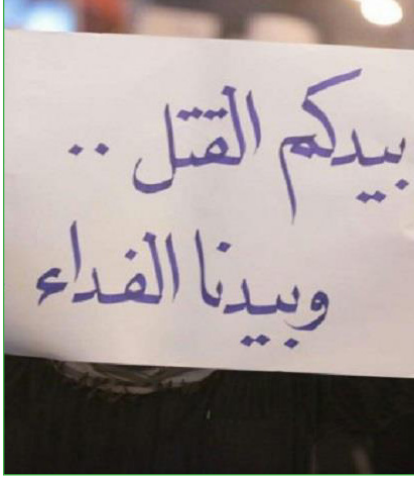 بيدكم القتل ..
وبيدنا الفداء